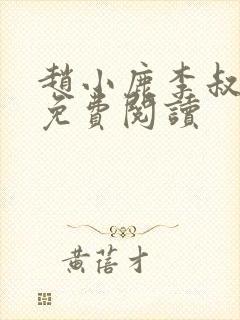 趙小鹿李叔
免費閱讀
黃蓓才